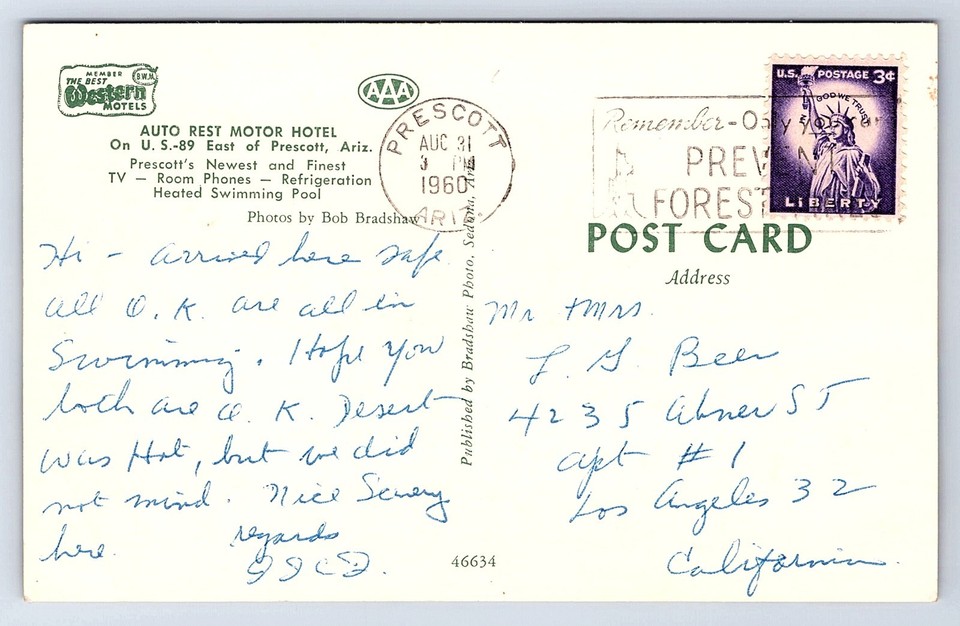 MEMBER
THE BEST
Western
MOTELS
B.W.M.
AAA
AUTO REST MOTOR HOTEL
On U. S.-89 East of Prescott, Ariz.
Prescott's Newest and Finest
TV — Room Phones — Refrigeration
Heated Swimming Pool
Photos by Bob Bradshaw
Hi - arrived here safe
all O. K. are all in
Swimming. Hope you
both are O. K. Desert
was Hot, but we did
not mind. Nice Scenery
here.
regards
46634
Published by Bradshaw Photo, Sedona, Ariz.
PRESCOTT
AUG 31
3 PM
1960
ARIZ.
Remember-Only you
PREV
FOREST
U.S. POSTAGE 3¢
IN GOD WE TRUST
LIBERTY
POST CARD
Address
Mr & Mrs.
L. G. Beer
4235 Abner ST
apt # 1
Los Angeles 32
California.